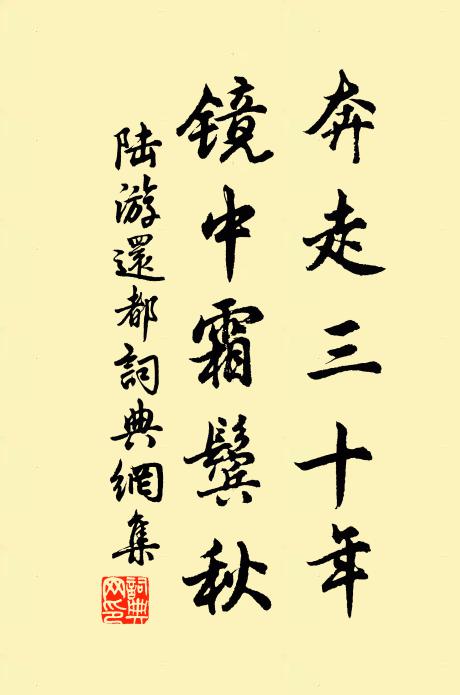 奔走三十年
镜中霜鬓秋
陆游還都詞典網集
詞典網印